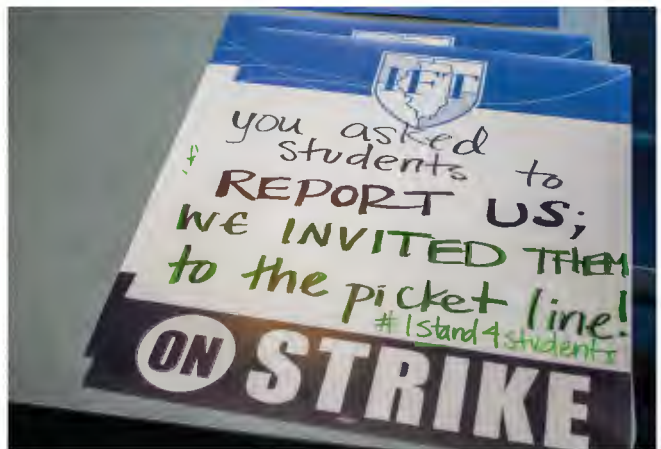 IFT
you asked
students to
REPORT US;
WE INVITED THEM
to the picket line!
#IStand4students
ON STRIKE